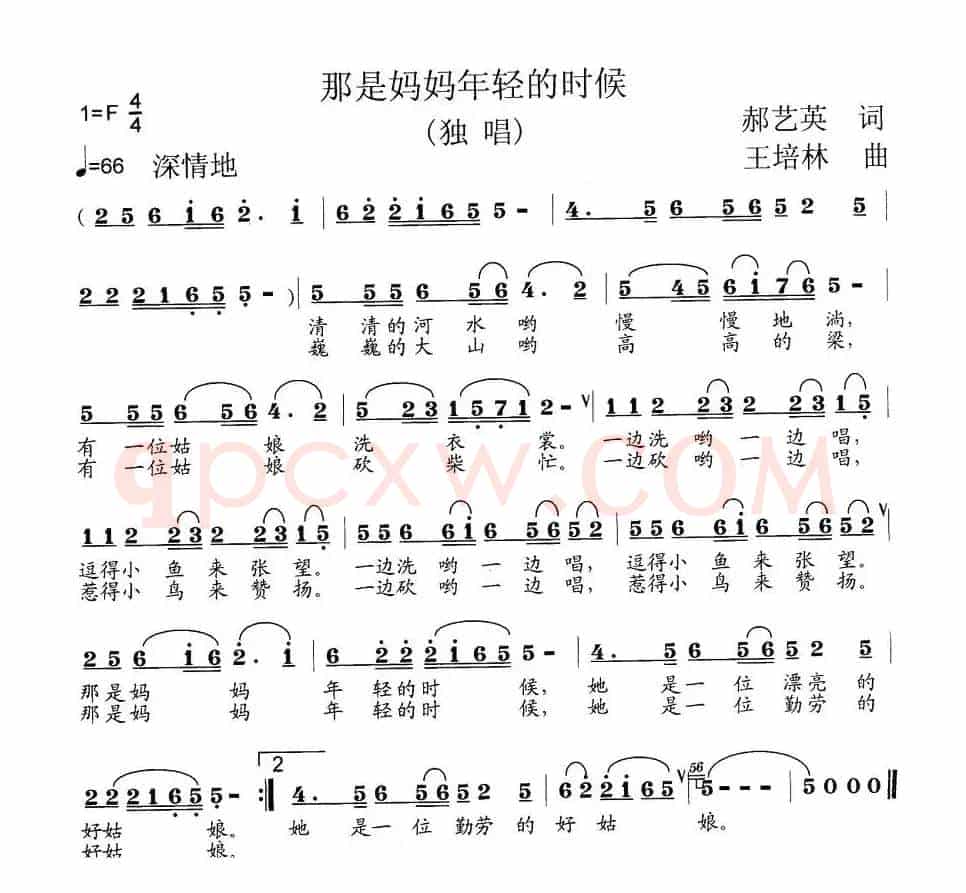 那是妈妈年轻的时候
1=F 4/4
(独 唱)
郝艺英 词
♩=66 深情地
王培林 曲
( 2 5 6 i 6 2. i | 6 2 2 i 6 5 5 - | 4. 5 6 5 6 5 2 5 |
2 2 2 1 6 5 5 - ) | 5 5 5 6 5 6 4. 2 | 5 4 5 6 i 7 6 5 - |
清 清的河 水 哟 慢 慢 地 淌,
巍 巍的大 山 哟 高 高 的 梁,
5 5 5 6 5 6 4. 2 | 5 2 3 1 5 7 1 2 - ∨ | 1 1 2 2 3 2 2 3 1 5 |
有 一位姑 娘 洗 衣 裳。 一边洗 哟 一 边 唱,
有 一位姑 娘 砍 柴 忙。 一边砍 哟 一 边 唱,
1 1 2 2 3 2 2 3 1 5 | 5 5 6 6 i 6 5 6 5 2 | 5 5 6 6 i 6 5 6 5 2 ∨
逗得小 鱼 来 张 望。 一边洗 哟 一 边 唱, 逗得小 鱼 来 张 望。
惹得小 鸟 来 赞 扬。 一边砍 哟 一 边 唱, 惹得小 鸟 来 赞 扬。
2 5 6 i 6 2. i | 6 2 2 2 i 6 5 5 - | 4. 5 6 5 6 5 2 5 |
那是妈 妈 年 轻的时 候, 她 是一 位 漂亮 的
那是妈 妈 年 轻的时 候, 她 是一 位 勤劳 的
2 2 2 1 6 5 5 - :‖ 2 4. 5 6 5 6 5 2 5 | 6 2 2 i 6 5 ∨ | 56 5 - - - | 5 0 0 0 ‖
好姑 娘。 她 是一 位 勤劳 的 好 姑 娘。
好姑 娘。
qpcxw.COM